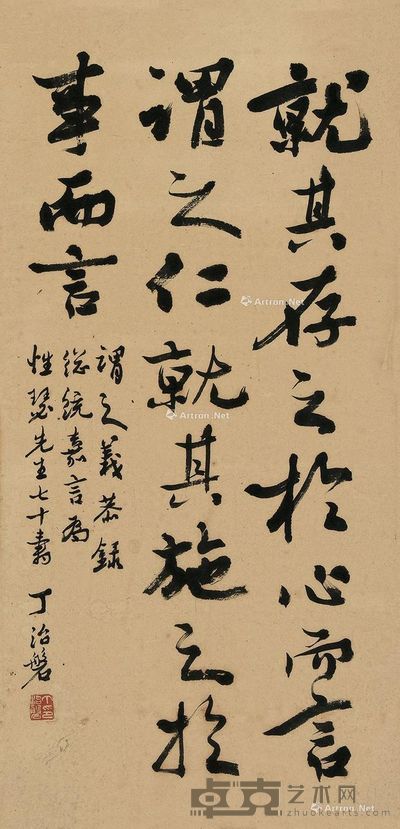 就其存之於心而言
謂之仁就其施之於
事而言
謂之義恭錄
總統嘉言為
性瑟先生七十壽
丁治磐
Artron.Net
Artron.Net
Artron.Net
Artron.Net
卓克艺术网
zhuokearts.com